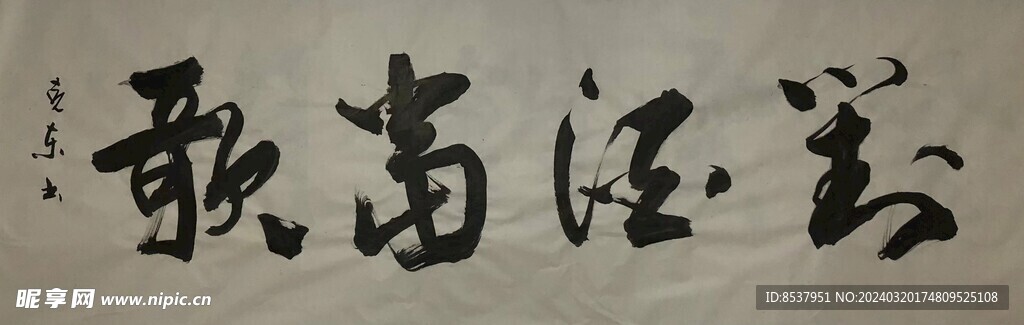 對酒當歌
尧东书
昵享网 www.nipic.cn
ID:8537951 NO:20240320174809525108